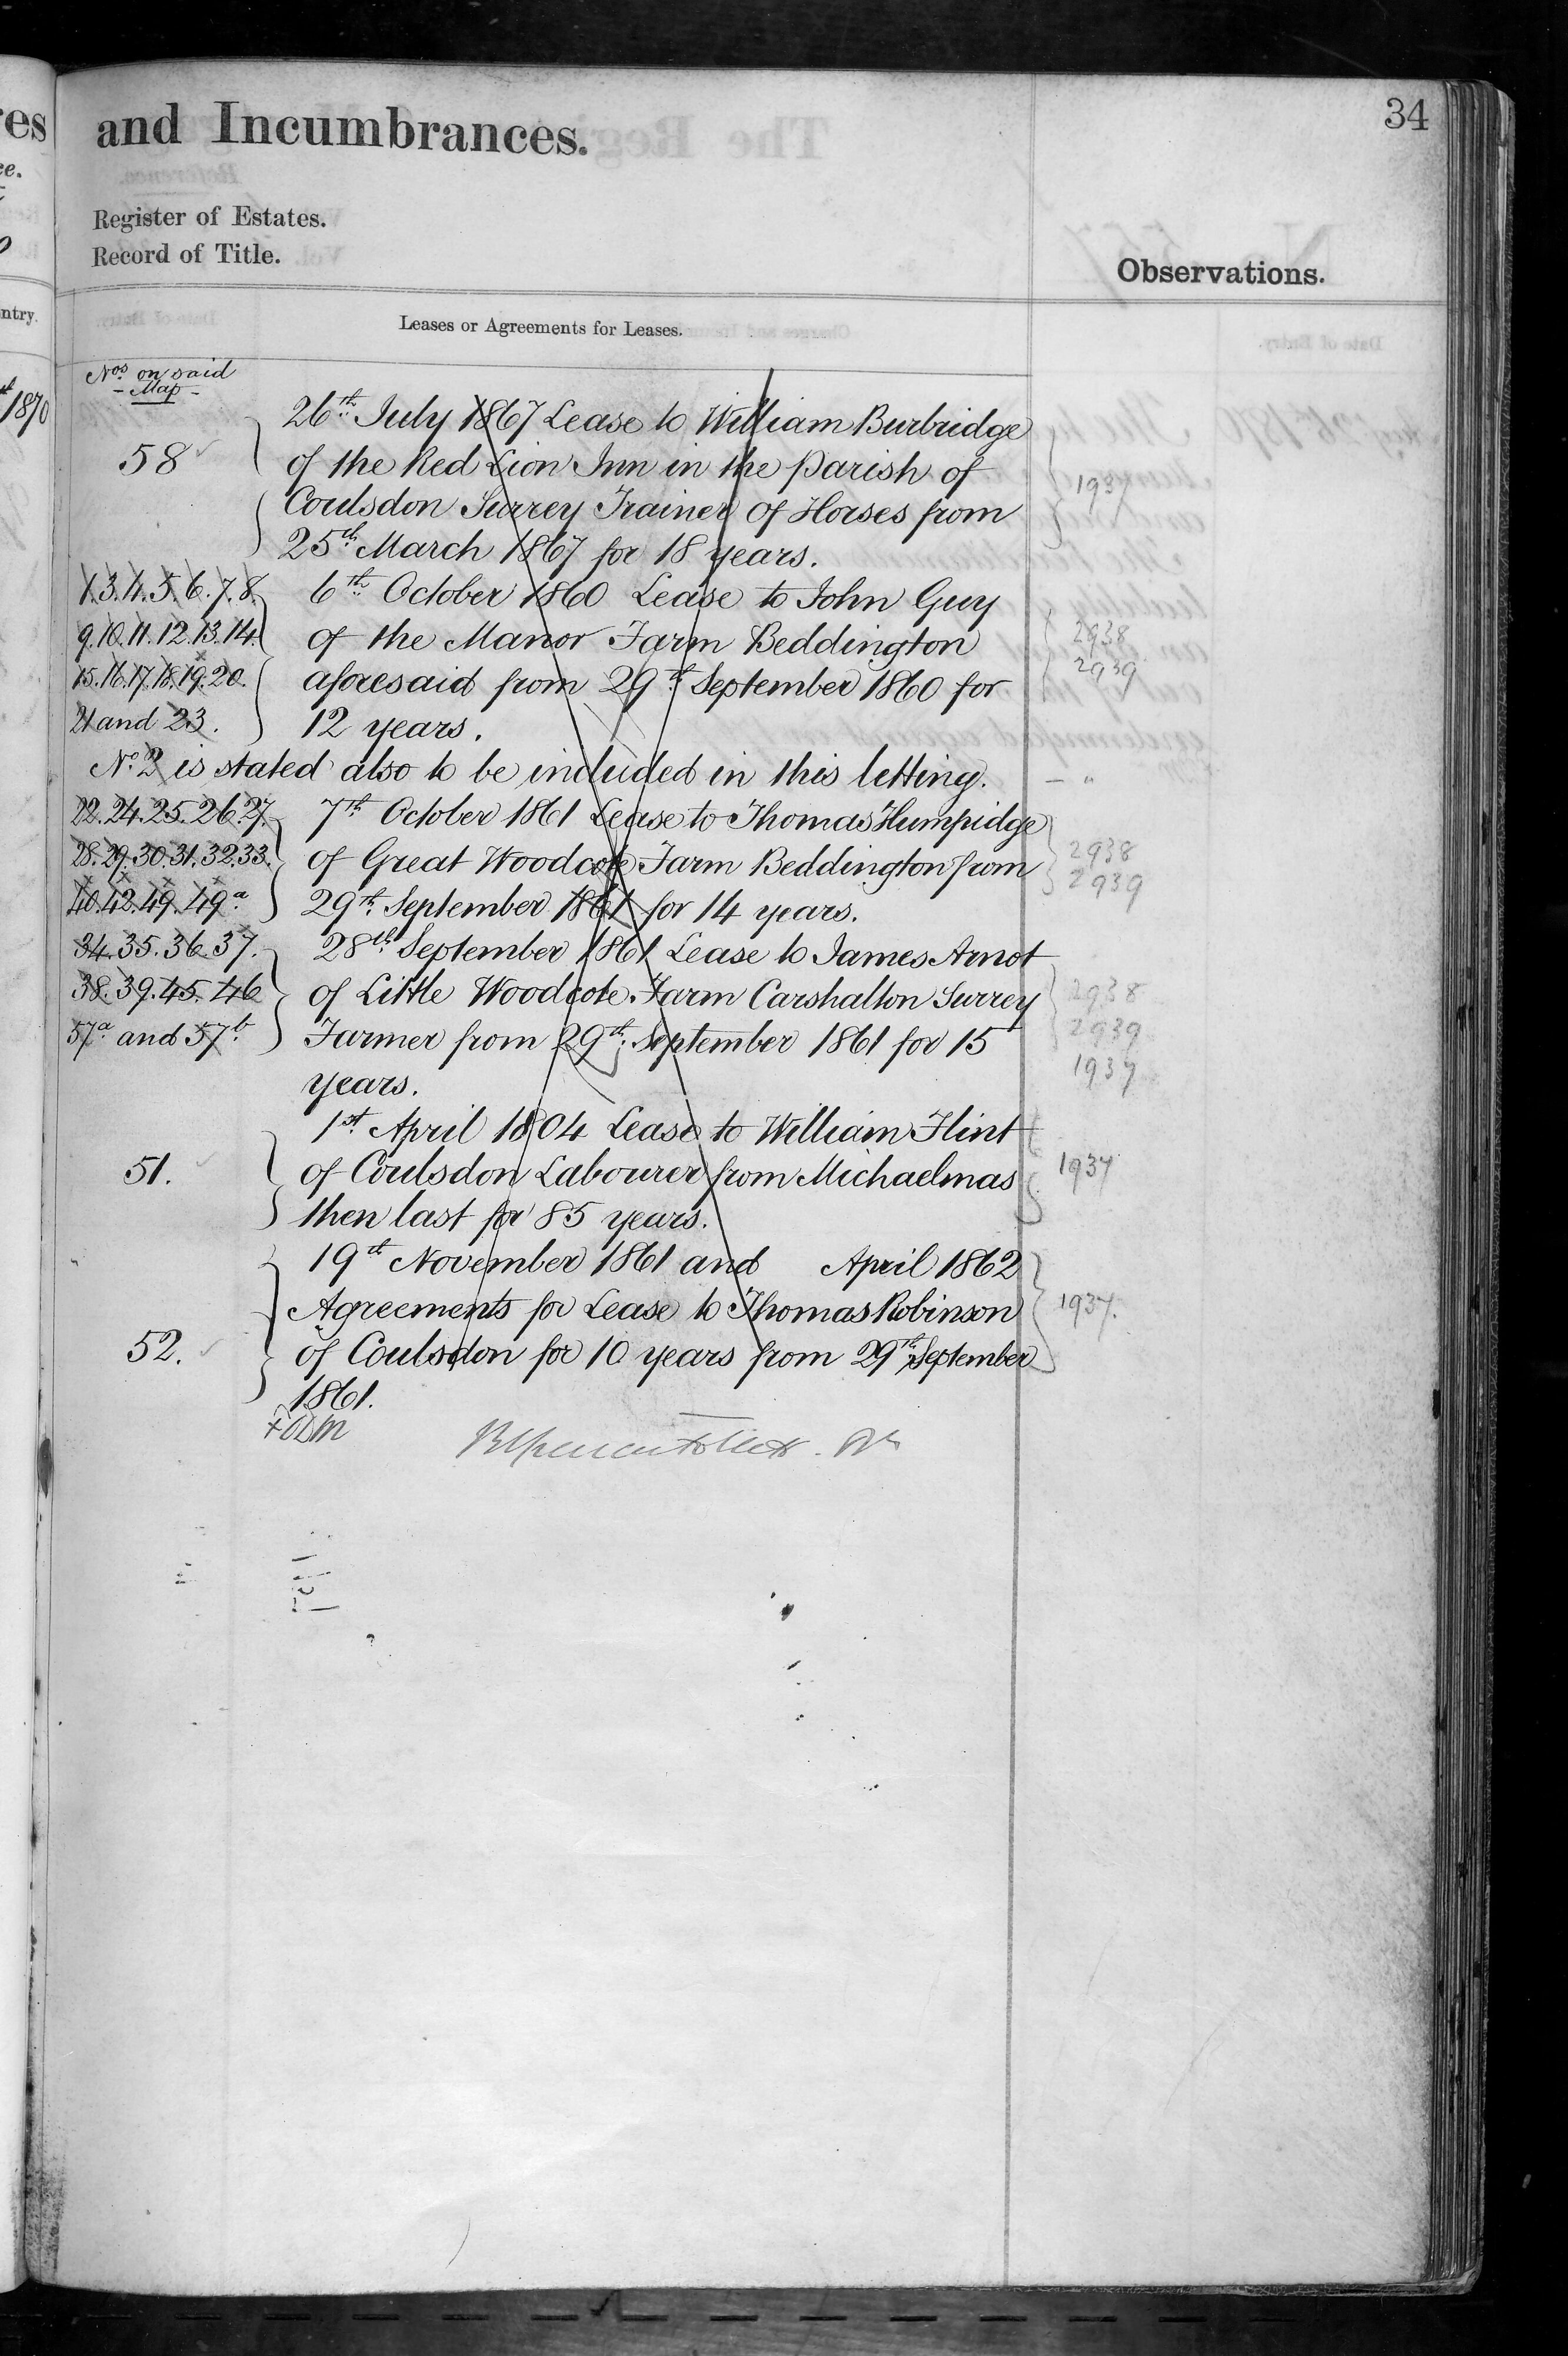 and Incumbrances.
34
Register of Estates.
Record of Title.
Observations.
Leases or Agreements for Leases.
Nos. on said
- Map -
1870
26th July 1867 Lease to William Burbridge
58 of the Red Lion Inn in the Parish of
1937
Coulsdon Surrey Trainer of Horses from
25th March 1867 for 18 years.
1.3.4.5.6.7.8. 6th October 1860 Lease to John Guy
9.10.11.12.13.14. of the Manor Farm Beddington 2938
15.16.17.18.19.20. aforesaid from 29th September 1860 for 2939
21 and 23. 12 years.
No. 2 is stated also to be included in this letting. - "
22.24.25.26.27. 7th October 1861 Lease to Thomas Humpidge
28.29.30.31.32.33. of Great Woodcote Farm Beddington from 2938
40.42.49.49a 29th September 1861 for 14 years. 2939
34.35.36.37. 28th September 1861 Lease to James Arnot
38.39.45.46 of Little Woodcote Farm Carshalton Surrey 2938
57a and 57b Farmer from 29th September 1861 for 15 2939
years. 1937
1st April 1804 Lease to William Flint
51. of Coulsdon Labourer from Michaelmas 1937
then last for 85 years.
19th November 1861 and April 1862
Agreements for Lease to Thomas Robinson 1937.
52. of Coulsdon for 10 years from 29th September
1861.